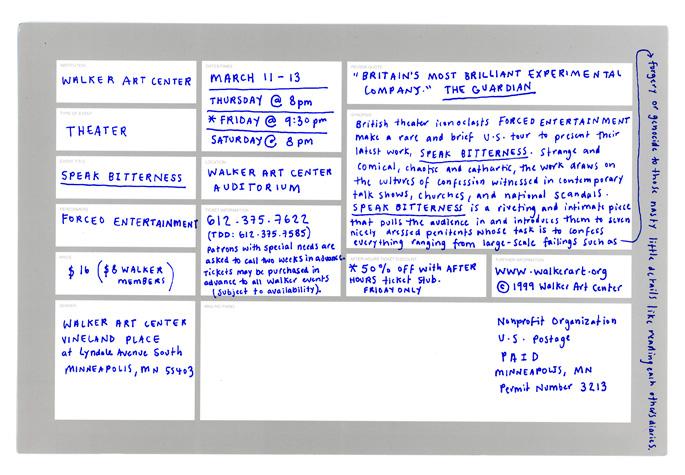 INSTITUTION
WALKER ART CENTER
TYPE OF EVENT
THEATER
EVENT TITLE
SPEAK BITTERNESS
PERFORMERS
FORCED ENTERTAINMENT
PRICE
$16 ($8 WALKER
MEMBERS)
SENDER
WALKER ART CENTER
VINELAND PLACE
at Lyndale Avenue South
MINNEAPOLIS, MN 55403
DATES/TIMES
MARCH 11-13
THURSDAY @ 8pm
* FRIDAY @ 9:30pm
SATURDAY @ 8pm
LOCATION
WALKER ART CENTER
AUDITORIUM
TICKET INFORMATION
612.375.7622
(TDD: 612.375.7585)
Patrons with special needs are
asked to call two weeks in advance.
Tickets may be purchased in
advance to all Walker events
(subject to availability).
REVIEW QUOTE
"BRITAIN'S MOST BRILLIANT EXPERIMENTAL
COMPANY." THE GUARDIAN
SYNOPSIS
British theater iconoclasts FORCED ENTERTAINMENT
make a rare and brief U.S. tour to present their
latest work, SPEAK BITTERNESS. Strange and
comical, chaotic and cathartic, the work draws on
the cultures of confession witnessed in contemporary
talk shows, churches, and national scandals.
SPEAK BITTERNESS is a riveting and intimate piece
that pulls the audience in and introduces them to seven
nicely dressed penitents whose task is to confess
everything ranging from large-scale failings such as
forgery or genocide to those nasty little details like reading each other's diaries.
AFTER HOURS TICKET DISCOUNT
* 50% OFF with AFTER
HOURS ticket stub.
FRIDAY ONLY
FURTHER INFORMATION
www.walkerart.org
© 1999 Walker Art Center
Nonprofit Organization
U.S. Postage
PAID
MINNEAPOLIS, MN
Permit Number 3213